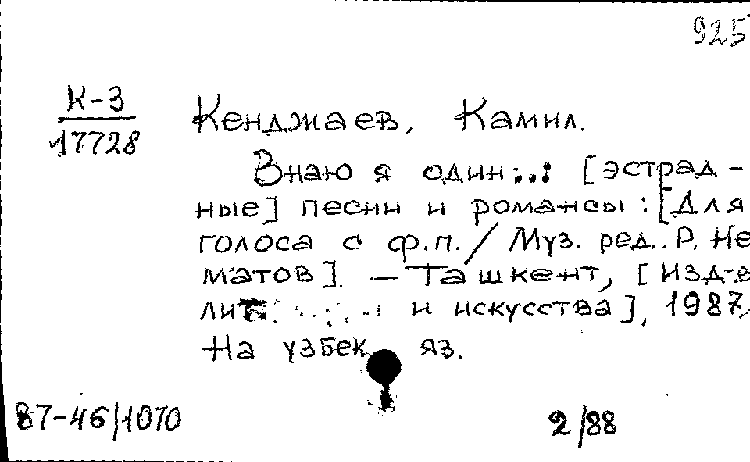 925
К-3
17728
Кенджаев, Камил.
Знаю я один...: [эстрад-
ные] песни и романсы: [Для
голоса с ф.п. / Муз. ред. Р. Не
матов]. – Ташкент, [изд-в
и искусства], 1987
На узбек. яз.
87-46/1070
2/88